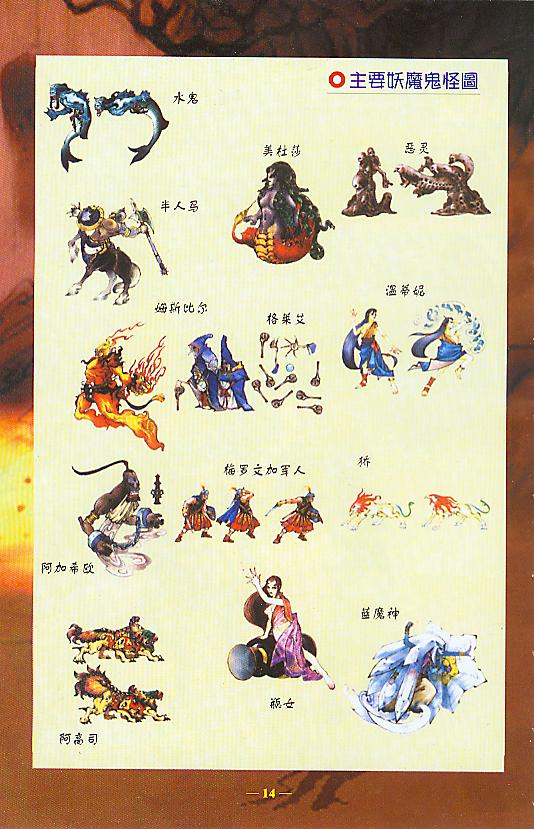 主要妖魔鬼怪圖
水鬼
美杜莎
惡灵
半人马
温蒂妮
姆斯比尔
格莱艾
梅罗文加军人
狮
阿加希欧
蓝魔神
瓶女
阿高司
— 14 —